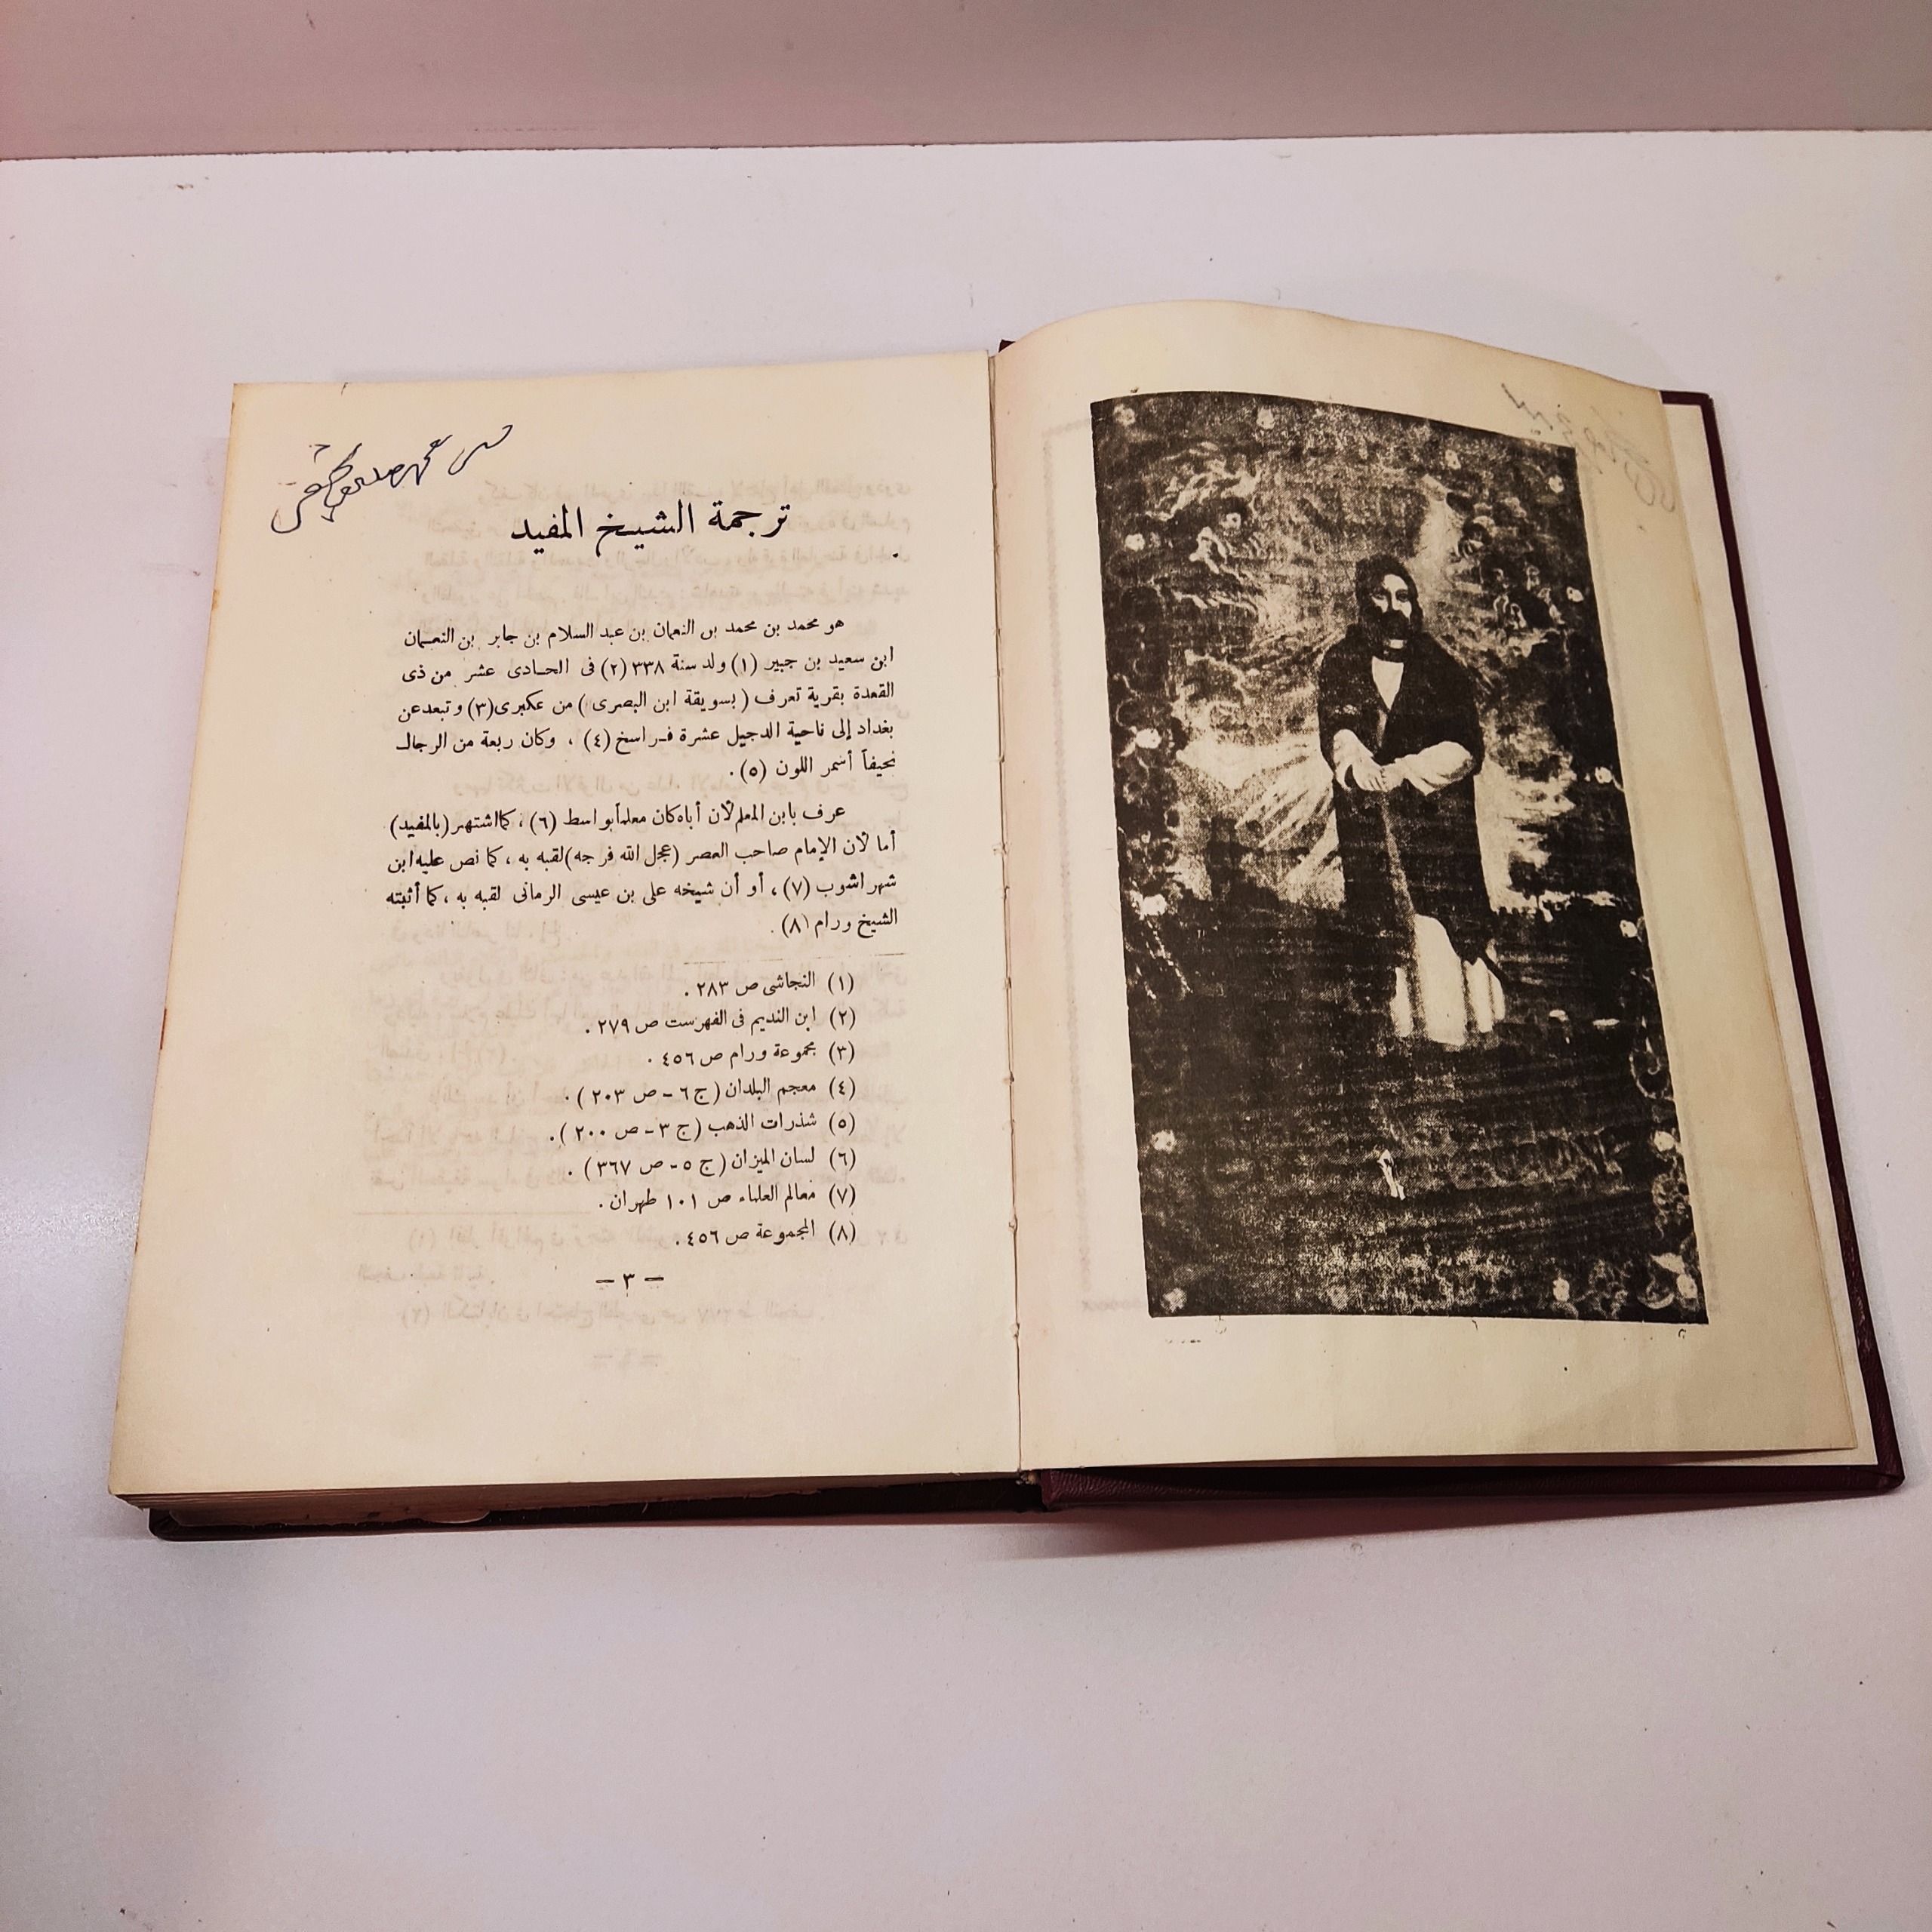 ترجمة الشيخ المفيد
هو محمد بن محمد بن النعمان بن عبد السلام بن جابر بن النعمان
ابن سعيد بن جبير (١) ولد سنة ٣٣٨ (٢) فى الحادى عشر من ذى
القعدة بقرية تعرف ( بسويقة ابن البصرى ) من عكبرى (٣) وتبعد عن
بغداد إلى ناحية الدجيل عشرة فراسخ (٤) ، وكان ربعة من الرجال
نحيفاً أسمر اللون (٥) .
عرف بابن المعلم لأن أباه كان معلماً بواسط (٦) ، كما اشتهر (بالمفيد)
أما لأن الإمام صاحب العصر (عجل الله فرجه) لقبه به ، كما نص عليه ابن
شهراشوب (٧) ، أو أن شيخه على بن عيسى الرمانى لقبه به ، كما أثبته
الشيخ ورام (٨) .
(١) النجاشى ص ٢٨٣ .
(٢) ابن النديم فى الفهرست ص ٢٧٩ .
(٣) مجموعة ورام ص ٤٥٦ .
(٤) معجم البلدان ( ج ٦ - ص ٢٠٣ ) .
(٥) شذرات الذهب ( ج ٣ - ص ٢٠٠ ) .
(٦) لسان الميزان ( ج ٥ - ص ٣٦٧ ) .
(٧) معالم العلماء ص ١٠١ طهران .
(٨) المجموعة ص ٤٥٦ .
— ٣ —